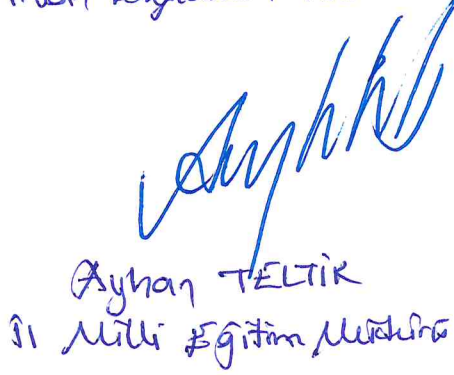 Ayhan TELTİK
İl Milli Eğitim Müdürü